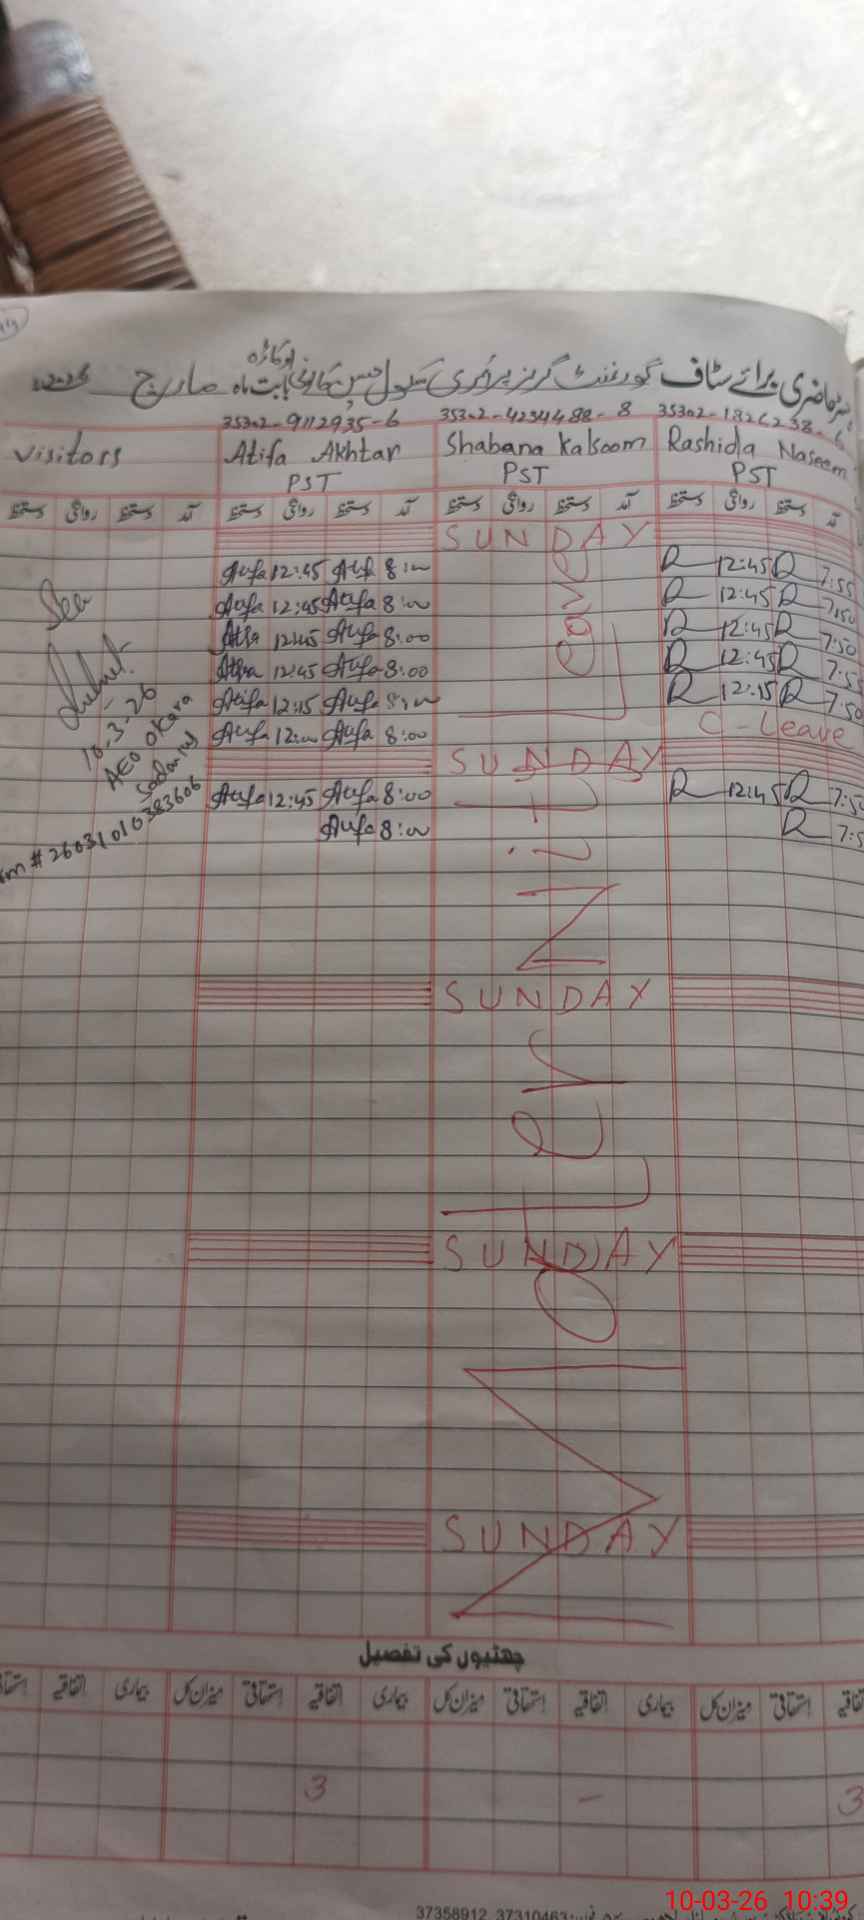 رجسٹر حاضری برائے سٹاف گورنمنٹ گرلز پرائمری سکول حسن کالونی اوکاڑہ بابت ماہ مارچ 2026
35302-9112935-6 35302-4234488-8 35302-1826238-6
Visitors Atifa Akhtar Shabana Kalsoom Rashida Naseem
PST PST PST
آمد دستخط روانگی دستخط آمد دستخط روانگی دستخط آمد دستخط روانگی دستخط
SUNDAY
Atifa 12:45 Atifa 8:00 R 12:45 R 7:55
Atifa 12:45 Atifa 8:00 R 12:45 R 7:50
Atifa 12:45 Atifa 8:00 R 12:45 R 7:50
Atifa 12:45 Atifa 8:00 R 12:45 R 7:55
Atifa 12:15 Atifa 8:00 R 12:15 R 7:50
Atifa 12:00 Atifa 8:00 C-Leave
SUNDAY
Atifa 12:45 Atifa 8:00 R 12:45 R 7:50
Atifa 8:00 R 7:5
Maternity Leave
See
10-3-26
AEO Okara
Sadar
# 26031010383606
SUNDAY
SUNDAY
SUNDAY
چھٹیوں کی تفصیل
اتفاقیہ استحقاقی میزان کل بیماری اتفاقیہ استحقاقی میزان کل بیماری اتفاقیہ استحقاقی میزان کل بیماری اتفاقیہ
3 - 3
37358912, 37310463
10-03-26 10:39